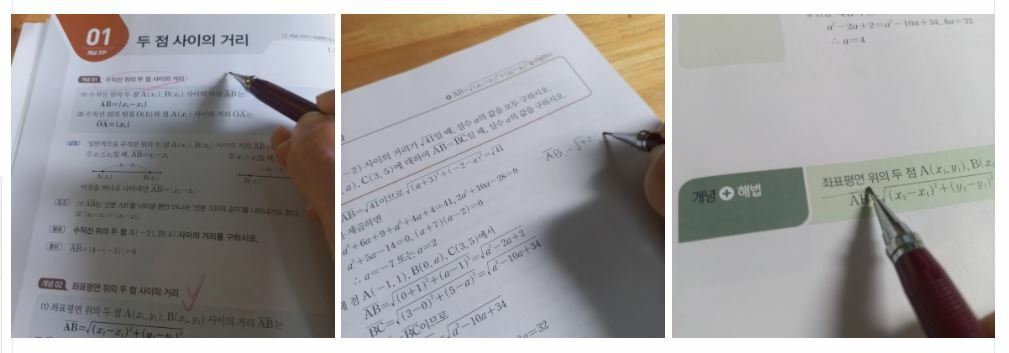 01
개념 ZIP
두 점 사이의 거리
개념 01 수직선 위의 두 점 사이의 거리
⑴ 수직선 위의 두 점 A(x₁), B(x₂) 사이의 거리 AB는
AB=|x₂-x₁|
⑵ 수직선 위의 원점 O(0)과 점 A(x₁) 사이의 거리 OA는
OA=|x₁|
일반적으로 수직선 위의 두 점 A(x₁), B(x₂) 사이의 거리 AB는
① x₁≤x₂일 때, AB=x₂-x₁
② x₁>x₂일 때
A(x₁) B(x₂)
이것을 하나로 나타내면 AB=|x₂-x₁|
참고 ⑴ AB는 '선분 AB'를 나타낼 뿐만 아니라 '선분 AB의 길이'를 나타내기도 한다.
⑵ |x₂-x₁|=|x₁-x₂|
수직선 위의 두 점 A(-2), B(4) 사이의 거리를 구하시오.
풀이 AB=|4-(-2)|=6
개념 02 좌표평면 위의 두 점 사이의 거리
⑴ 좌표평면 위의 두 점 A(x₁, y₁), B(x₂, y₂) 사이의 거리 AB는
AB=√(x₂-x₁)²+(y₂-y₁)²
AB=√(x₂-x₁)²+(y₂-y₁)²
-2) 사이의 거리가 √41일 때, 실수 a의 값을 모두 구하시오.
a), C(3, 5)에 대하여 AB=BC일 때, 실수 a의 값을 구하시오.
AB=√41이므로 √(a+3)²+(-2-a)²=√41
제곱하면
a²+6a+9+a²+4a+4=41, 2a²+10a-28=0
a²+5a-14=0, (a+7)(a-2)=0
∴ a=-7 또는 a=2
점 A(-1, 1), B(0, a), C(3, 5)에서
AB=√(0+1)²+(a-1)²=√a²-2a+2
BC=√(3-0)²+(5-a)²=√a²-10a+34
=BC이므로
=√a²-10a+34
8a=32
AB=√
a²-2a+2=a²-10a+34, 8a=32
∴ a=4
개념 + 해법
좌표평면 위의 두 점 A(x₁, y₁), B(x₂
AB=√(x₂-x₁)²+(y₂-y₁)²